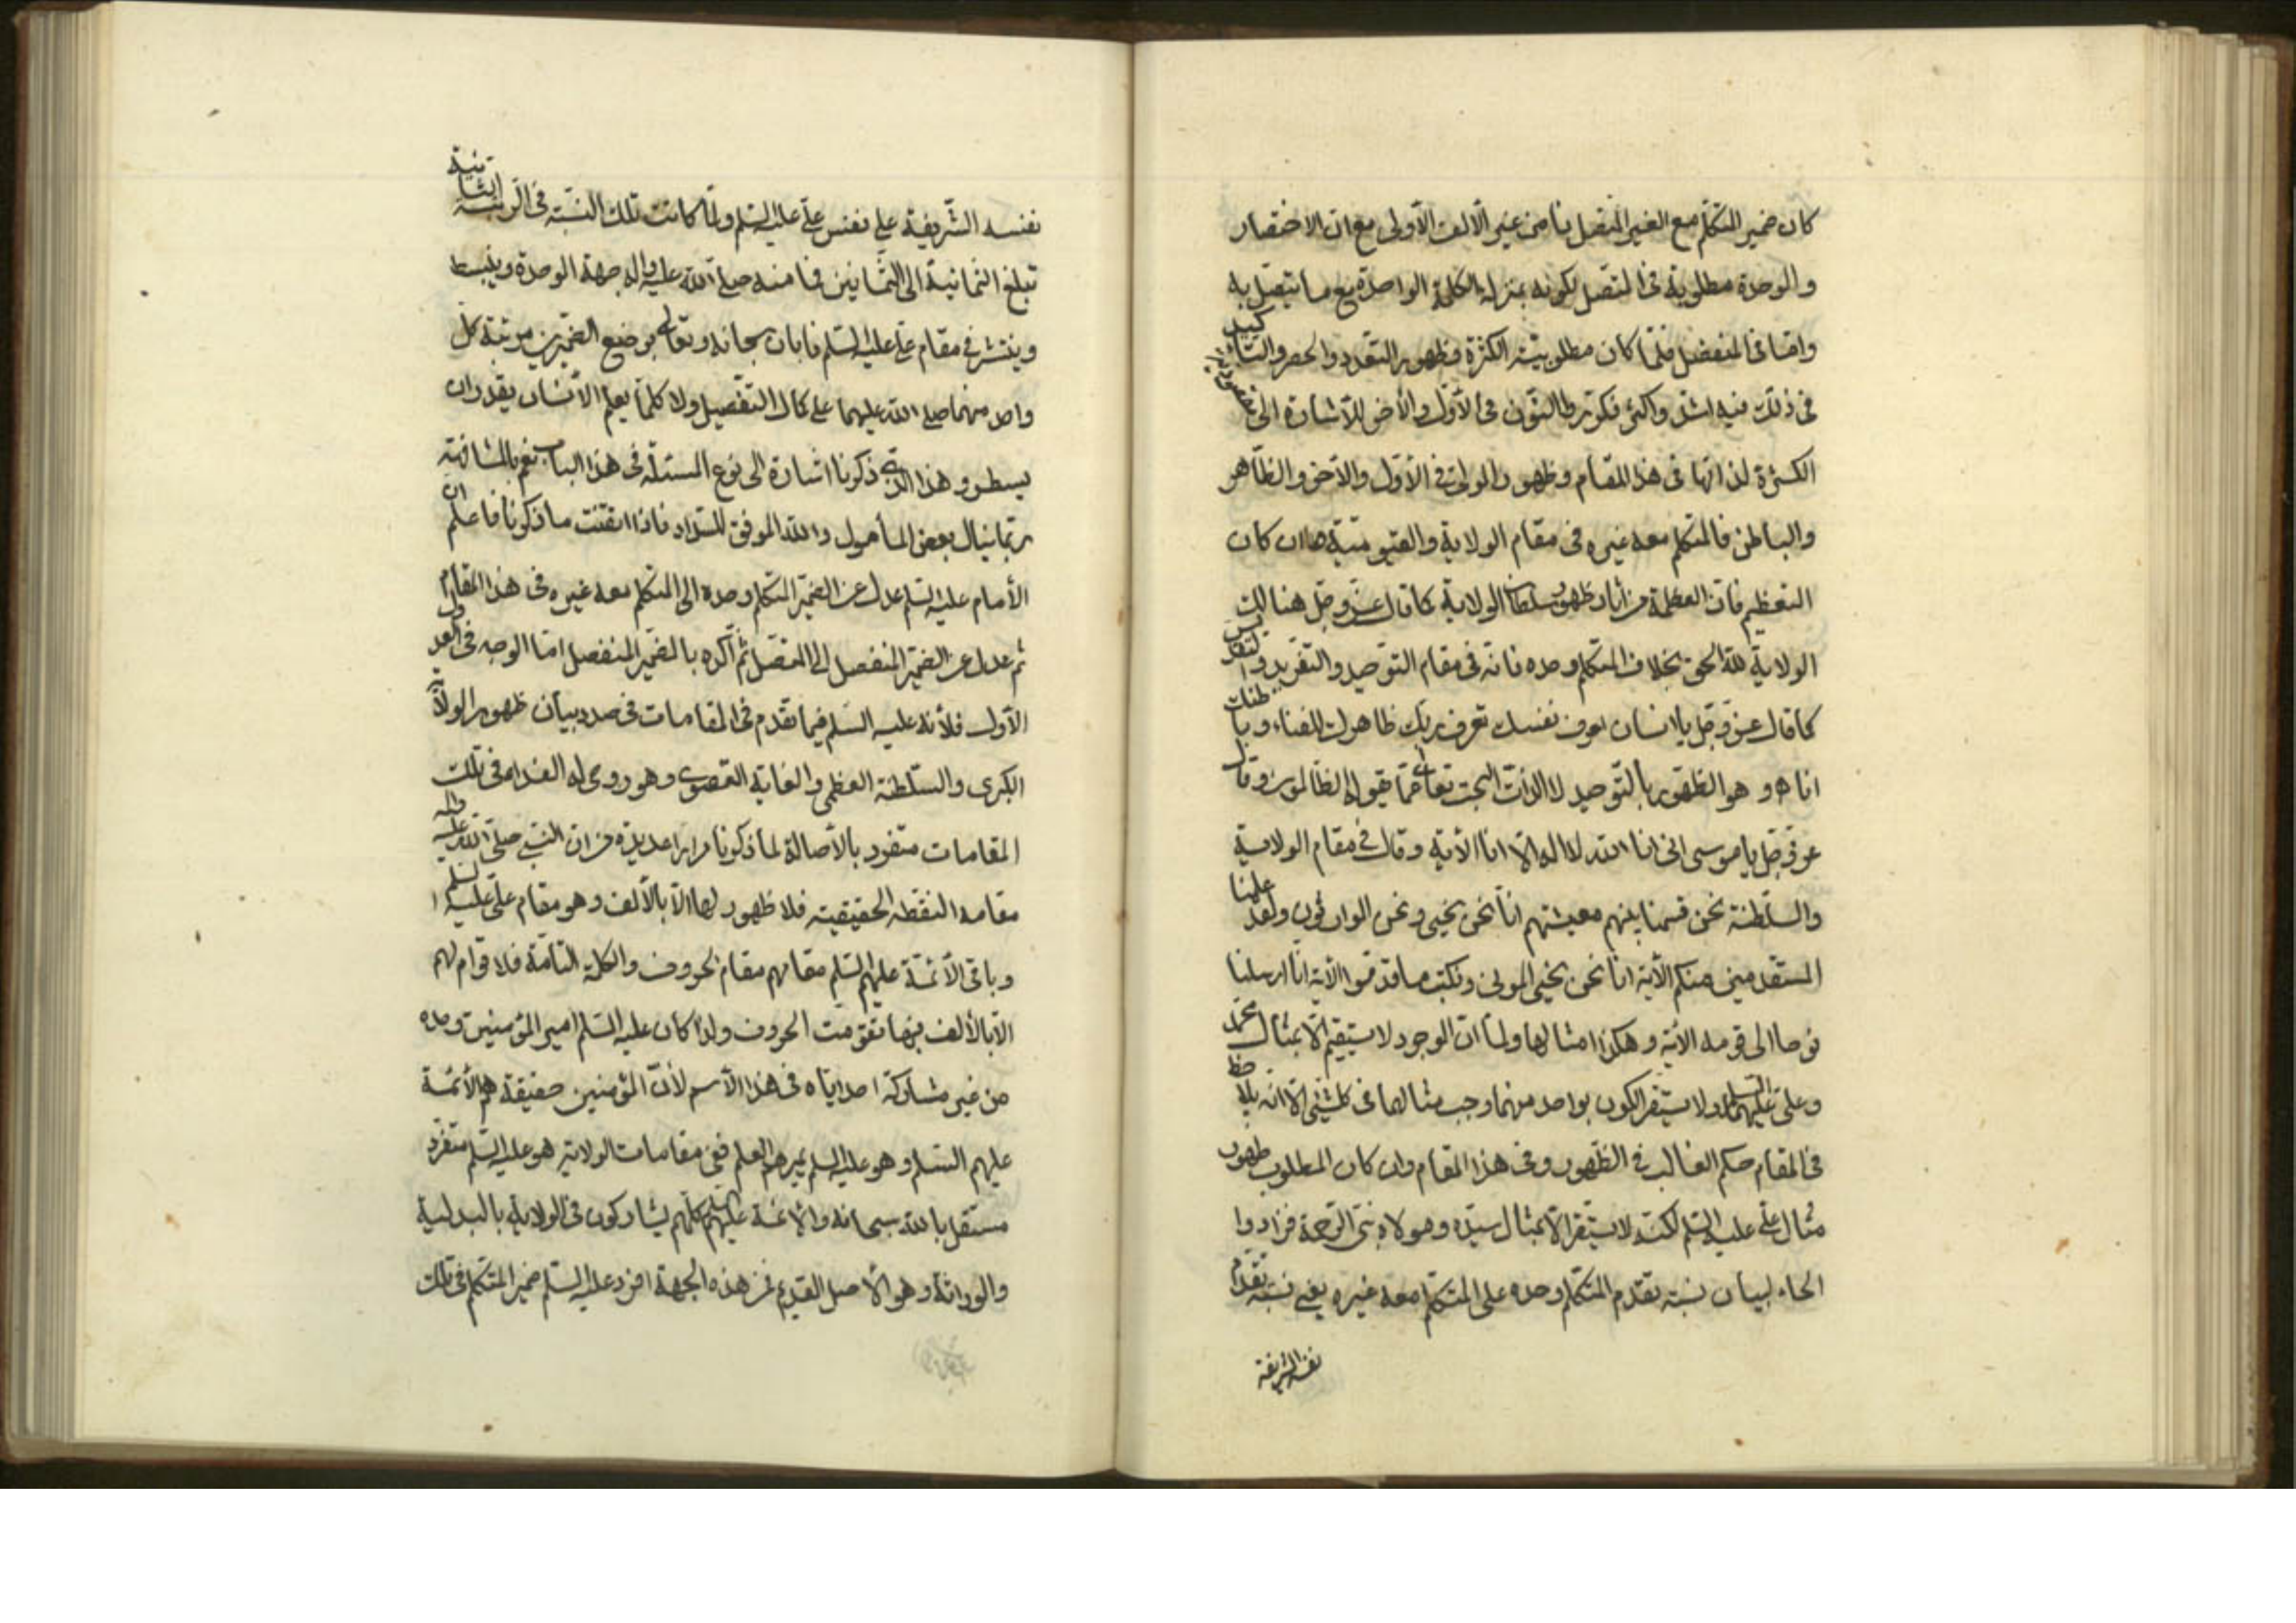 كان ضمير المتكلم مع الغير المتصل نا من غير الألف الأولى مع ان الاختصار
والوحدة مطلوبة في المتصل لكونه بمنزلة الكلمة الواحدة مع ما يتصل به
واما في المنفصل فلما كان مطلوبيته الكثرة وظهور التعدد والحصر والتأكيد
في ذلك فيه اشد واكثر فكرر طالنون في الأول والأخر للأشارة الى
الكثرة لذاتها في هذا المقام وظهور المولى في الأول والآخر والظاهر
والباطن فالمتكلم معه غيره في مقام الولاية والقيومية هاان كان
التعظيم فان العظمة من اثار ظهور سلطان الولاية كما قال عز وجل هنالك
الولاية لله الحق بخلاف المتكلم وحده فانه في مقام التوحيد والتفريد و
كما قال عز وجل يا انسان اعرف نفسك تعرف ربك ظاهرك للفناء وباطنك
انا هو وهو الظهور بالتوحيد لا الذات البحت تعالى عما يقول الظالمون وقال
عز وجل يا موسى انى انا الله لا اله الا انا الأية وقال في مقام الولاية
والسلطنة نحن قسمنا بينهم معيشتهم انا نحن نحيى ونحن الوارثون ولقد علمنا
المستقدمين منكم الأية انا نحن نحيي الموتى ونكتب ما قدموا الأية انا ارسلنا
نوحا الى قومه الأية وهكذا امثالها ولما ان الوجود لا يستقيم الا بمثال محمد
وعلي عليهما السلام ولا يستقر الكون بواحد منهما وجب مثالهما في كلشئ الا انه يلاحظ
في المقام حكم الغالب في الظهور وفي هذا المقام وان كان المطلوب ظهور
مثال علي عليه السلم لكنه لا يستقر الا بمثال سيده ومولاه نبي الرحمة فزادوا
الحاء لبيان نسبة تقدم المتكلم وحده على المتكلم معه غيره يعني نسبة تقدم
نفسه الشريفة
نفسه الشريفة على نفس علي عليه السلم ولما كانت تلك النسبة في الرتبة الثانية
تبلغ الثمانية الى الثمانين فنا منه صلى الله عليه واله جهة الوحدة وينبسط
وينتشر في مقام علي عليه السلم فابان سبحانه وتعالى بوضع الضميرين مرتبة كل
واحد منهما صلى الله عليهما على كمال التفصيل ولا كلما يعلم الأنسان يقدر ان
يسطر وهذا الذي ذكرنا اشارة الى نوع المسئلة في هذا الباب نعم بالمشافهة
ربما ينال بعض المأمول والله الموفق للسداد فاذا اتقنت ما ذكرنا فاعلم ان
الأمام عليه السلم عدل عن الضمير المتكلم وحده الى المتكلم معه غيره في هذا المقام
ثم عدل عن الضمير المنفصل الى المتصل ثم اكده بالضمير المنفصل اما الوجه في العدول
الأول فلأنه عليه السلم فيما تقدم في المقامات في صدد بيان ظهور الولاية
الكبرى والسلطنة العظمى والغاية القصوى وهو روحى له الفداء في تلك
المقامات متفرد بالأصالة لما ذكرنا مرارا عديدة من ان النبي صلى الله عليه واله
مقامه النقطة الحقيقية فلا ظهور لها الا بالألف وهو مقام علي عليه السلم
وباقى الأئمة عليهم السلم مقامهم مقام الحروف والكلمة التامة فلا قوام لهم
الا بالألف بها تقومت الحروف ولذا كان عليه السلم امير المؤمنين وحده
من غير مشاركة احد اياه في هذا الأسم لأن المؤمنين حقيقة هم الأئمة
عليهم السلم وهو عليه السلم يميرهم العلم ففي مقامات الولاية هو عليه السلم متفرد
مستقل بالله سبحانه والأئمة عليهم السلم كلهم يشاركون في الولاية بالبدلية
والوراثة وهو الأصل القديم فمن هذه الجهة افرد عليه السلم ضمير المتكلم في تلك